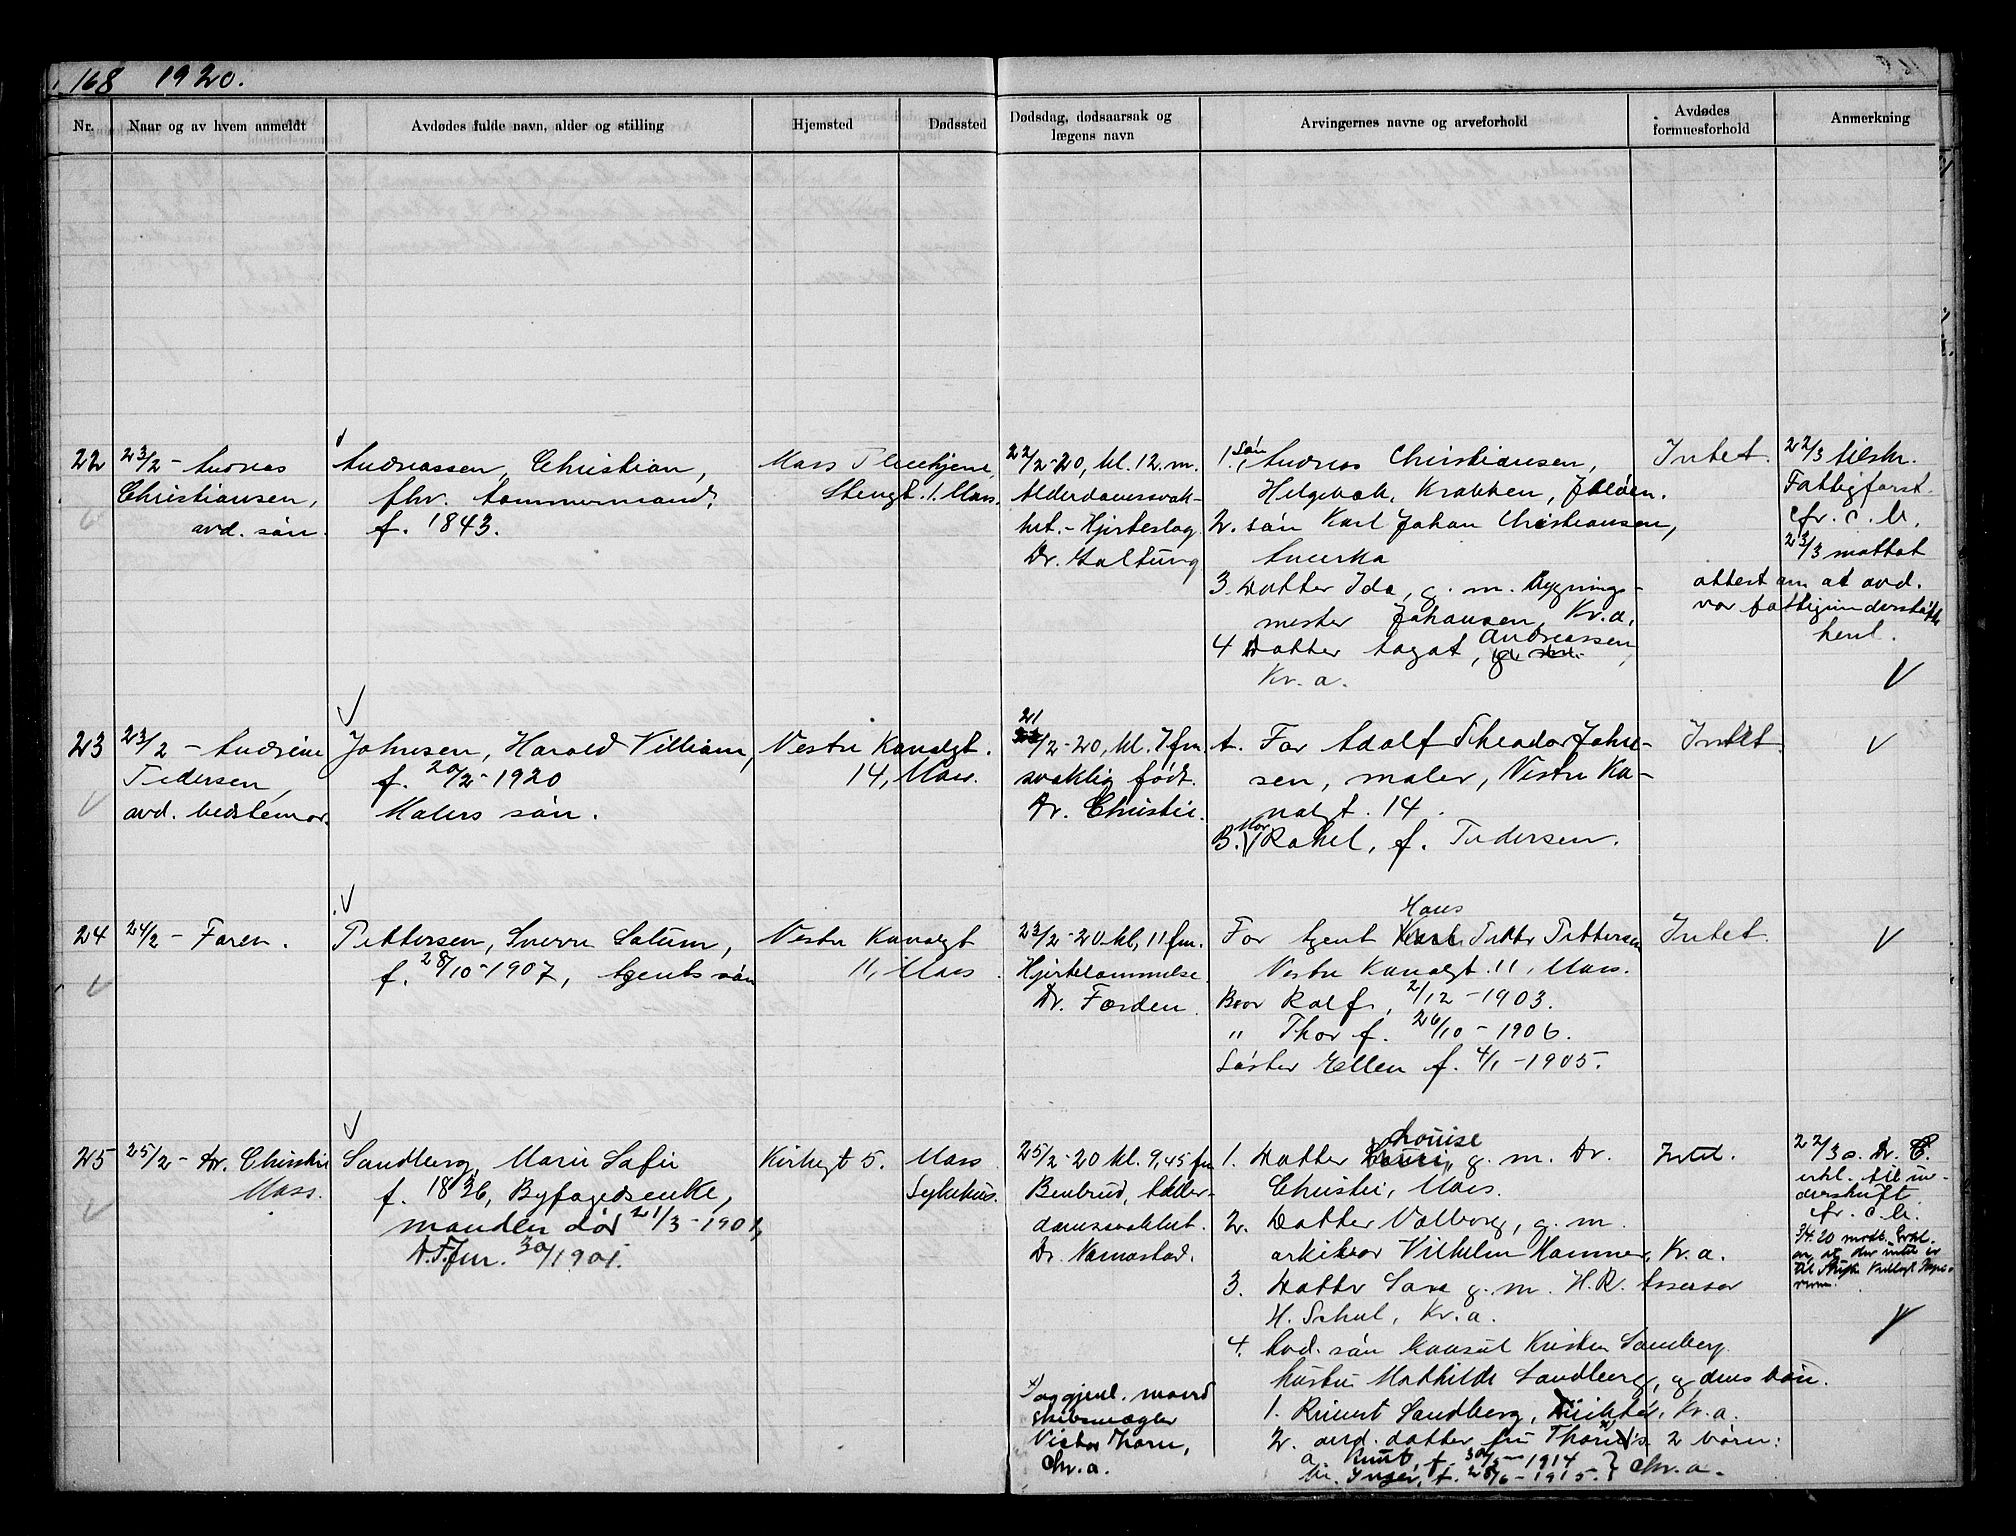 168 1920.
Nr. Naar og av hvem anmeldt Avdødes fulde navn, alder og stilling Hjemsted Dødssted Dødsdag, dødsaarsak og lægens navn Arvingernes navne og arveforhold Avdødes formuesforhold Anmerkning
22
23/2 - Andreas
Christiansen,
avd. søn.
Andreassen, Christian,
fhv. tømmermand,
f. 1843.
Moss Pleiehjem,
Stengt. 1. Moss.
22/2-20, kl. 12. m.
Alderdomssvak-
het. - Hjerteslag
Dr. Galtung
1. Søn Andreas Christiansen,
Helgebak, Krabben, Jeløen.
2. søn Karl Johan Christiansen,
Amerka
3. Datter Ida, g. m. Bygnings-
mester Johansen, Kr.a.
4 Datter Aagot, Andreassen,
Kr. a.
Intet.
22/3 tilskr.
Fattigforst.
cfr. c. b.
23/3 mottat
attest om at avd.
var fattigunderstøt-
henl.
23
23/2 - Andrine
Pedersen,
avd. bedstemor.
Johnsen, Harald Villiam,
f. 20/2-1920
Malers søn.
Vestre Kanalgt.
14, Moss.
21/2-20, kl. 7 fm.
svaklig født.
Dr. Christie.
A. Far Adolf Theodor John-
sen, maler, Vestre Ka-
nalgt. 14.
B. Mor Rakel, f. Pedersen.
Intet
24
24/2 - Faren.
Pettersen, Sverre Solum,
f. 28/10-1907, Agents søn
Vestre Kanalgt
11, Moss
23/2-20 kl. 11 fm.
Hjertelammelse.
Dr. Førden.
Hans
Far Agent Petter Pettersen
Vestre Kanalgt. 11, Moss.
Bror Ralf, 2/12-1903.
" Thor f. 26/10-1906.
Søster Ellen f. 4/1-1905.
Intet.
25
25/2 - Dr. Christie
Moss.
Sandberg, Marie Sofie
f. 1836, Byfogedenke,
manden død 21/3-1901,
Kirkegt 5.
Moss
Sykehus.
25/2-20 kl. 9,45 fm
Benbrud, Alder-
domssvakhet.
Dr. Namostad.
Opgjønl. mand
skibsmægler
Victor Thorn,
Chr.a.
Louise
1. Datter g. m. Dr.
Christie, Moss.
2. Datter Valborg, g. m.
arkitekt Vilhelm Hammer, Kr. a.
3. Datter Sara g. m. H. R. Assessor
H. Schul, Kr.a.
4. Avd. søn konsul Kristen Sandberg.
hustru Mathilde Sandberg, og dens børn.
1. Rinert Sandberg, Direktør, Kr.a.
2. avd. datter fru Thorn's 2 børn:
a Knut, f. 30/5-1914 } Chr. a.
b. Inger, f. 28/6-1915.
Intet.
22/3 s. Dr. C.
erkl. til un-
derskrift
cfr. c. b.